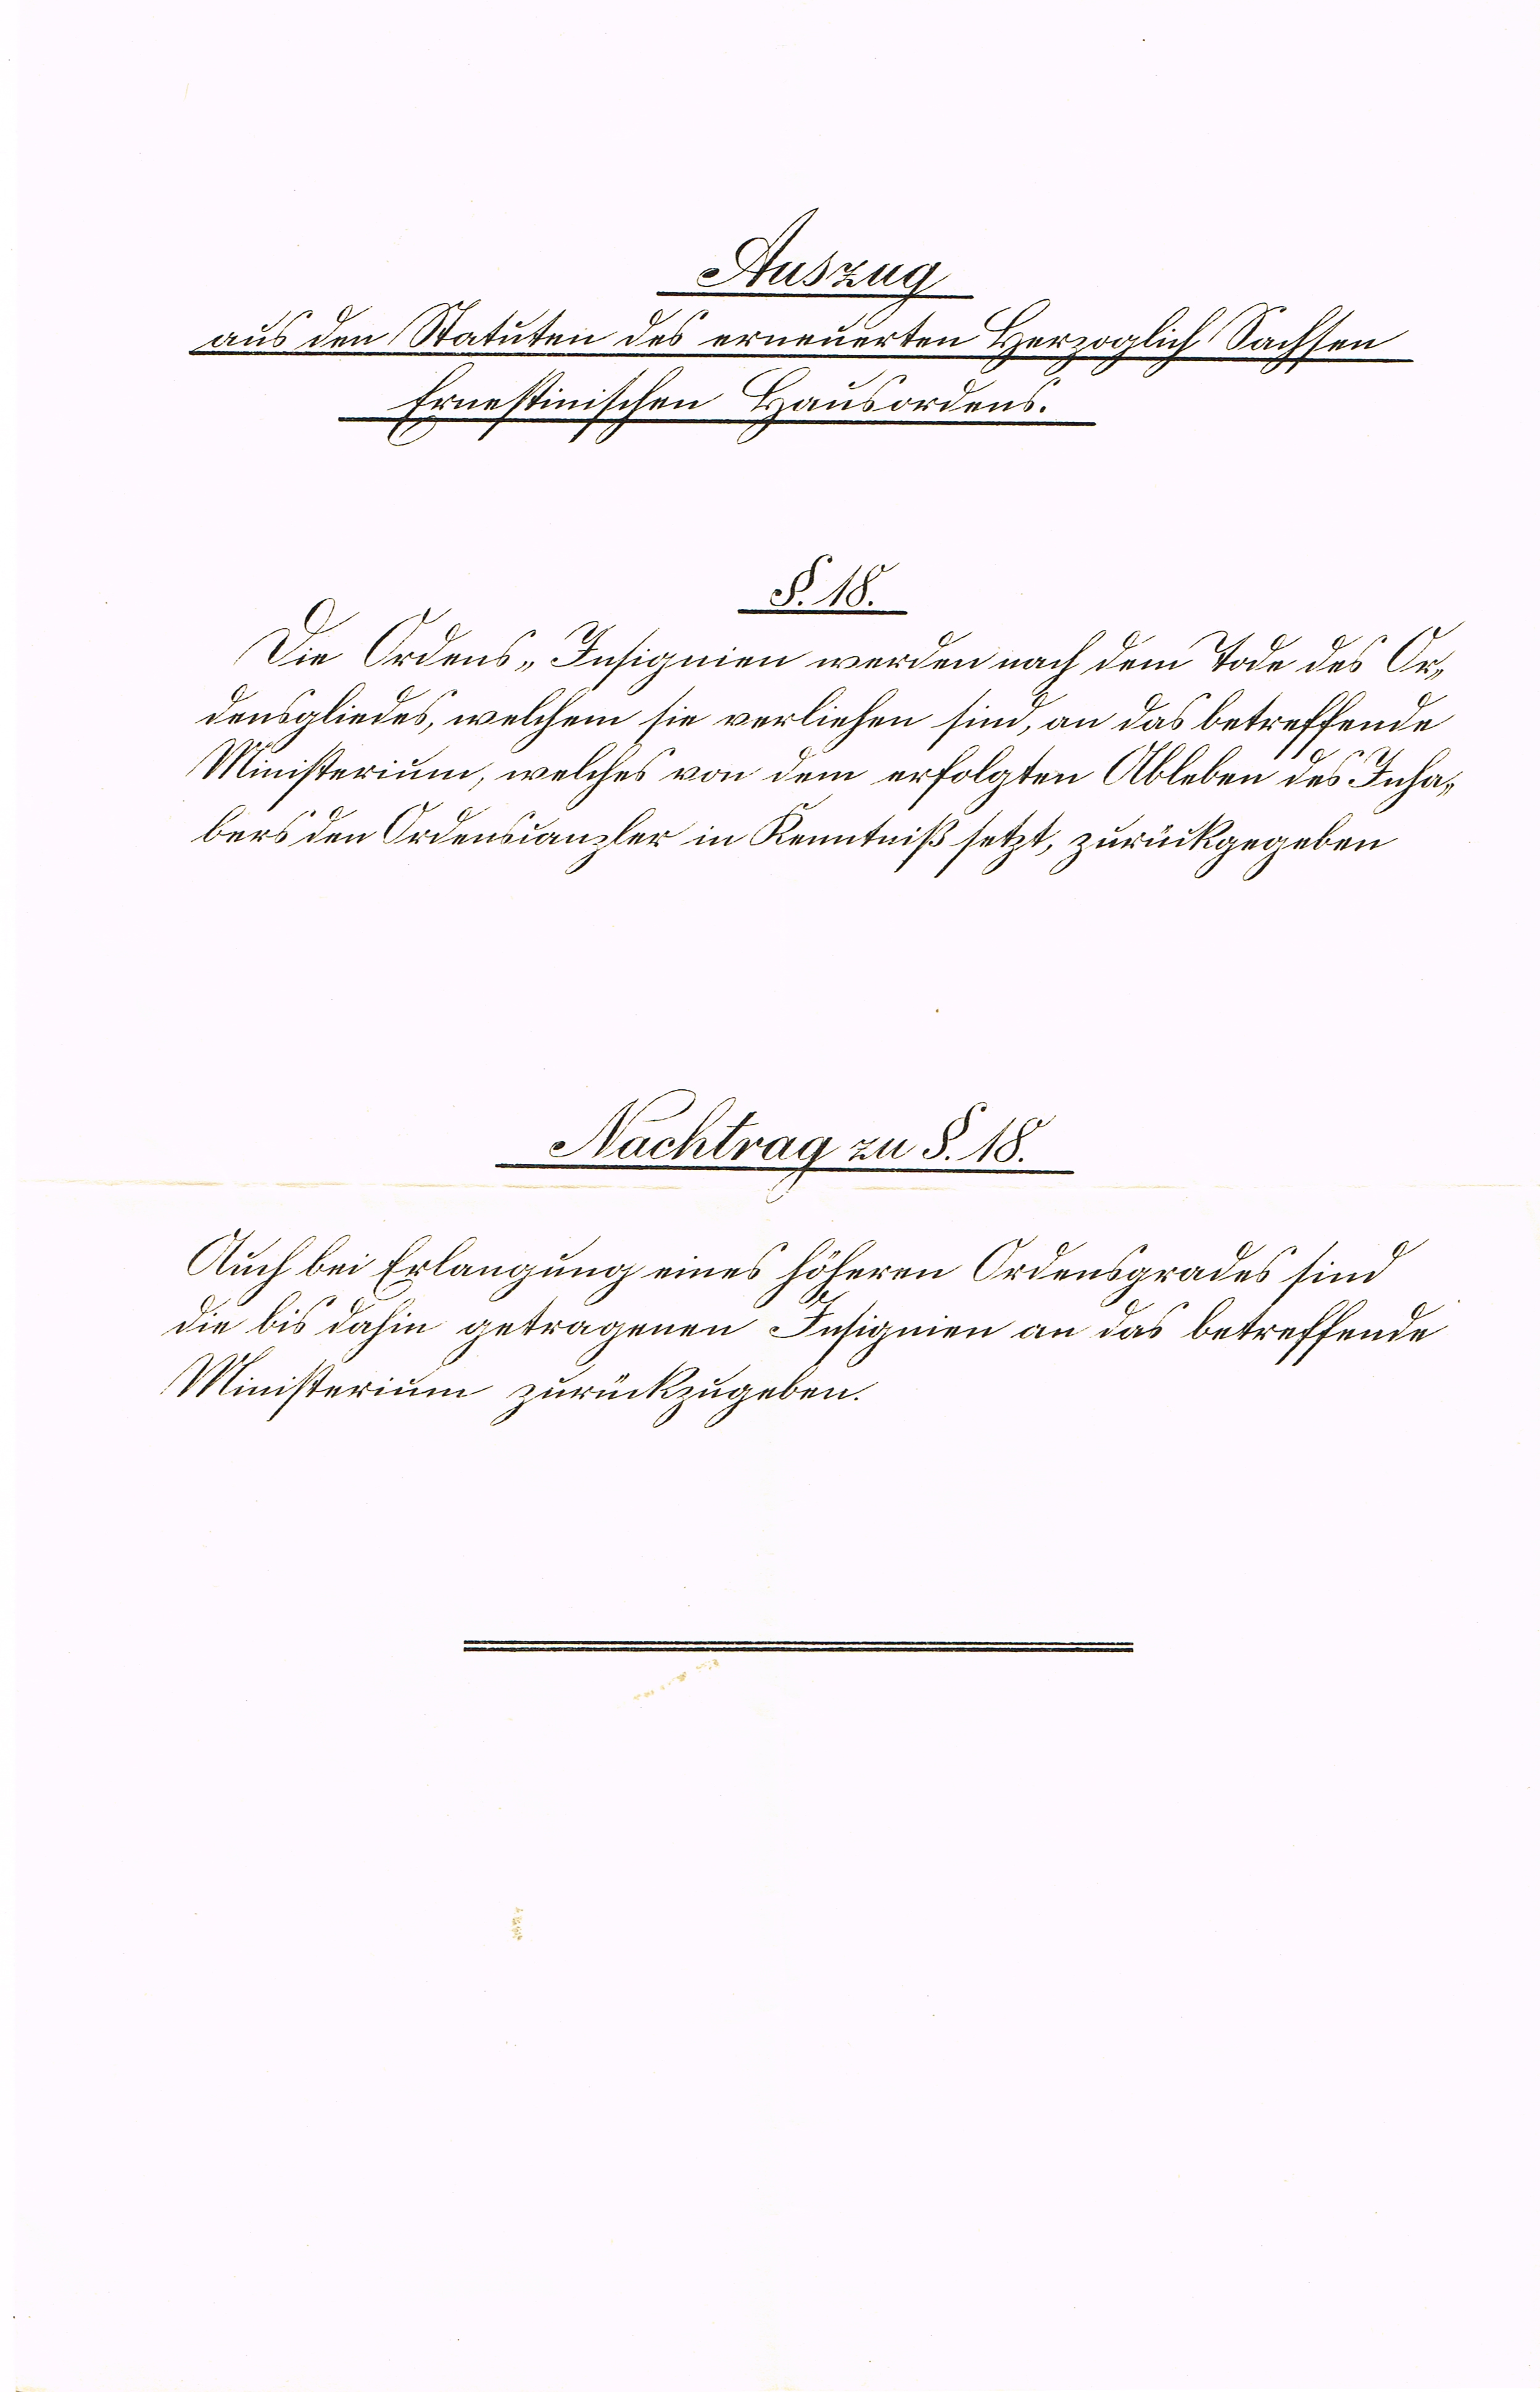 Auszug
aus den Statuten des erneuerten Herzoglich Sachsen
Ernestinischen Hausordens.
§. 18.
Die Ordens„Insignien werden nach dem Tode des Or„
densgliedes, welchem sie verliehen sind, an das betreffende
Ministerium, welches von dem erfolgten Ableben des Inha„
bers den Ordenscanzler in Kenntniß setzt, zurückgegeben
Nachtrag zu §. 18.
Auch bei Erlangung eines höheren Ordensgrades sind
die bis dahin getragenen Insignien an das betreffende
Ministerium zurückzugeben.